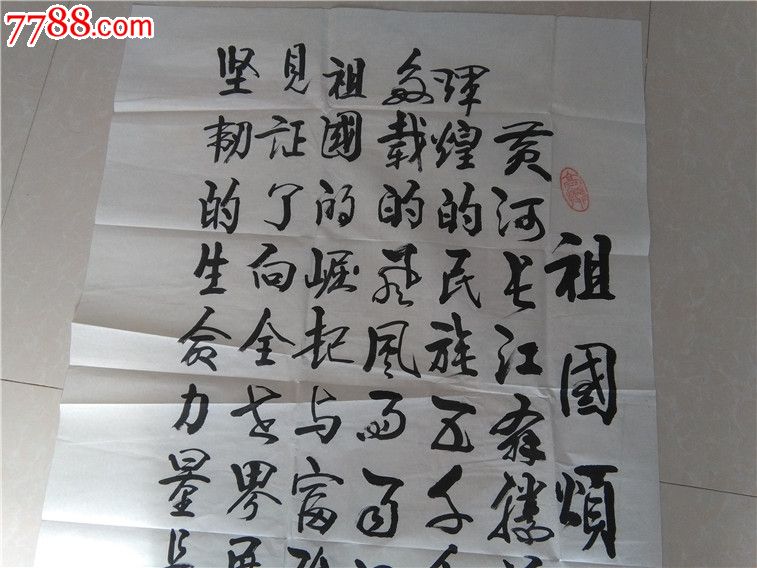 7788.com
祖國頌
黄河长江奔腾
辉煌的民族五千
载的风风雨雨
祖國的崛起与富
见证了向全世界展
坚韧的生命力量